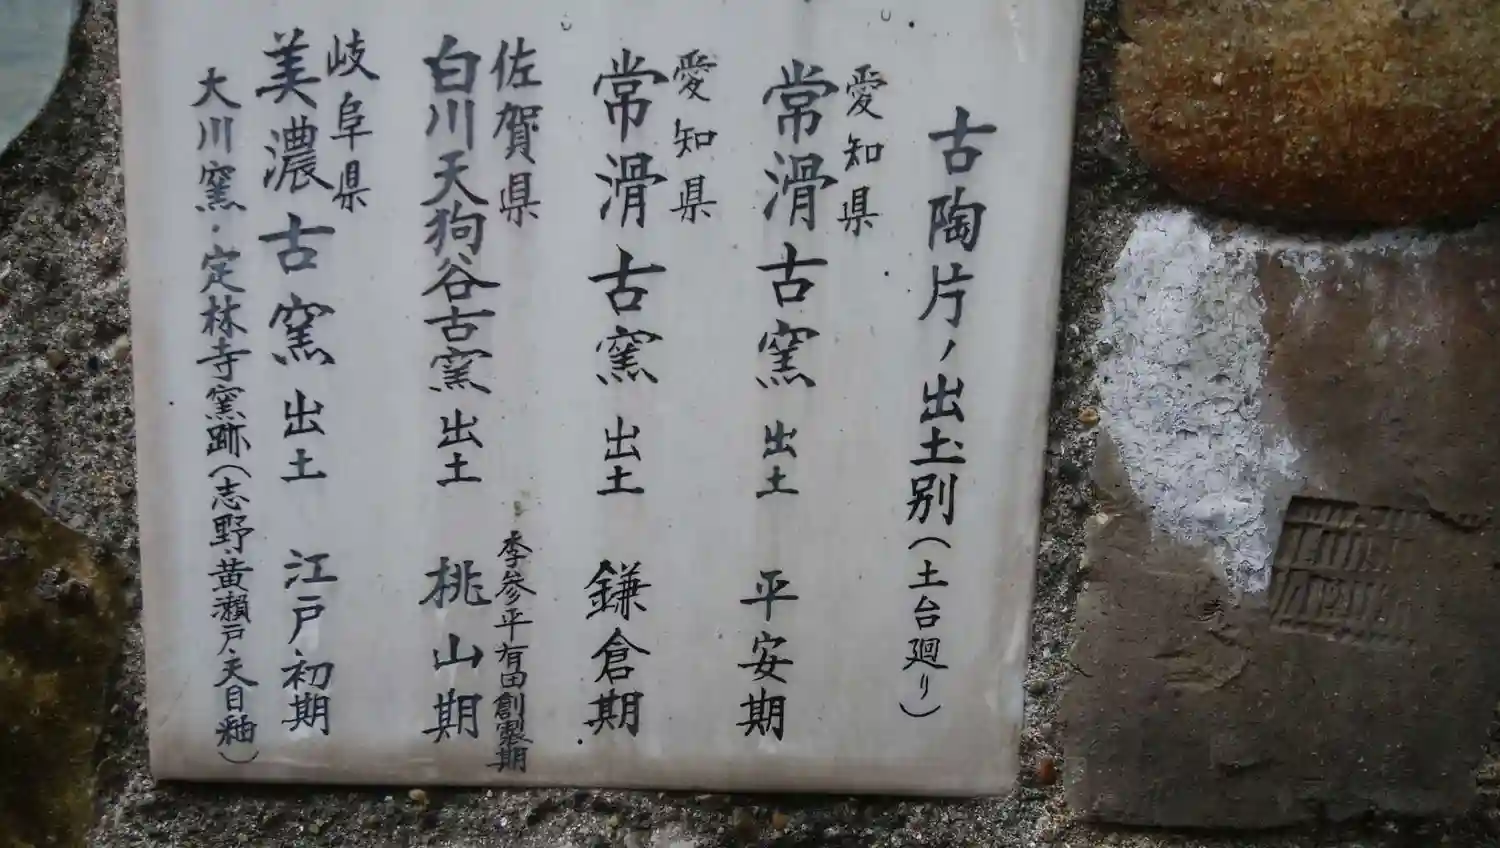 古陶片ノ出土別（土台廻り）
愛知県
常滑古窯出土 平安期
愛知県
常滑古窯出土 鎌倉期
佐賀県
李参平有田創製期
白川天狗谷古窯出土 桃山期
岐阜県
美濃古窯出土 江戸初期
大川窯・定林寺窯跡（志野、黄瀬戸、天目釉）